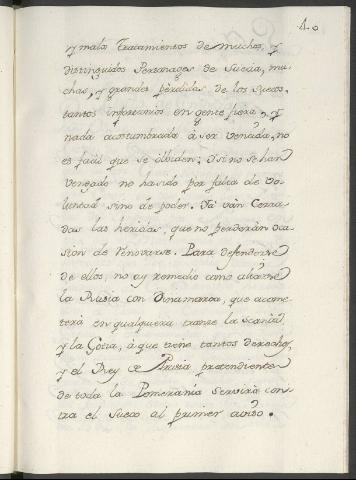 40
y malos tratamientos de muchos, y
distinguidos Personages de Suecia, mu-
chas, y grandes pèrdidas de los Suecos,
tantos infortunios en gente fiera, y
nada acostumbrada à sèr vencida, no
es facil que se olviden; I si no se han
vengado no ha sido por falta de vo-
luntad sino de poder. Và vàn Cerra-
das las heridas, que no perderàn oca-
sion de renovarse. Para defenderse
de ellos, no ay remedio como aliarse
la Rusia con Dinamarca, que acome-
terà en qualquiera trance la Scania,
y la Gotia, à que tiene tantos derechos,
y el Rey de Prusia pretendiente
de toda la Pomerania servirà con-
tra el Sueco al primer aviso.